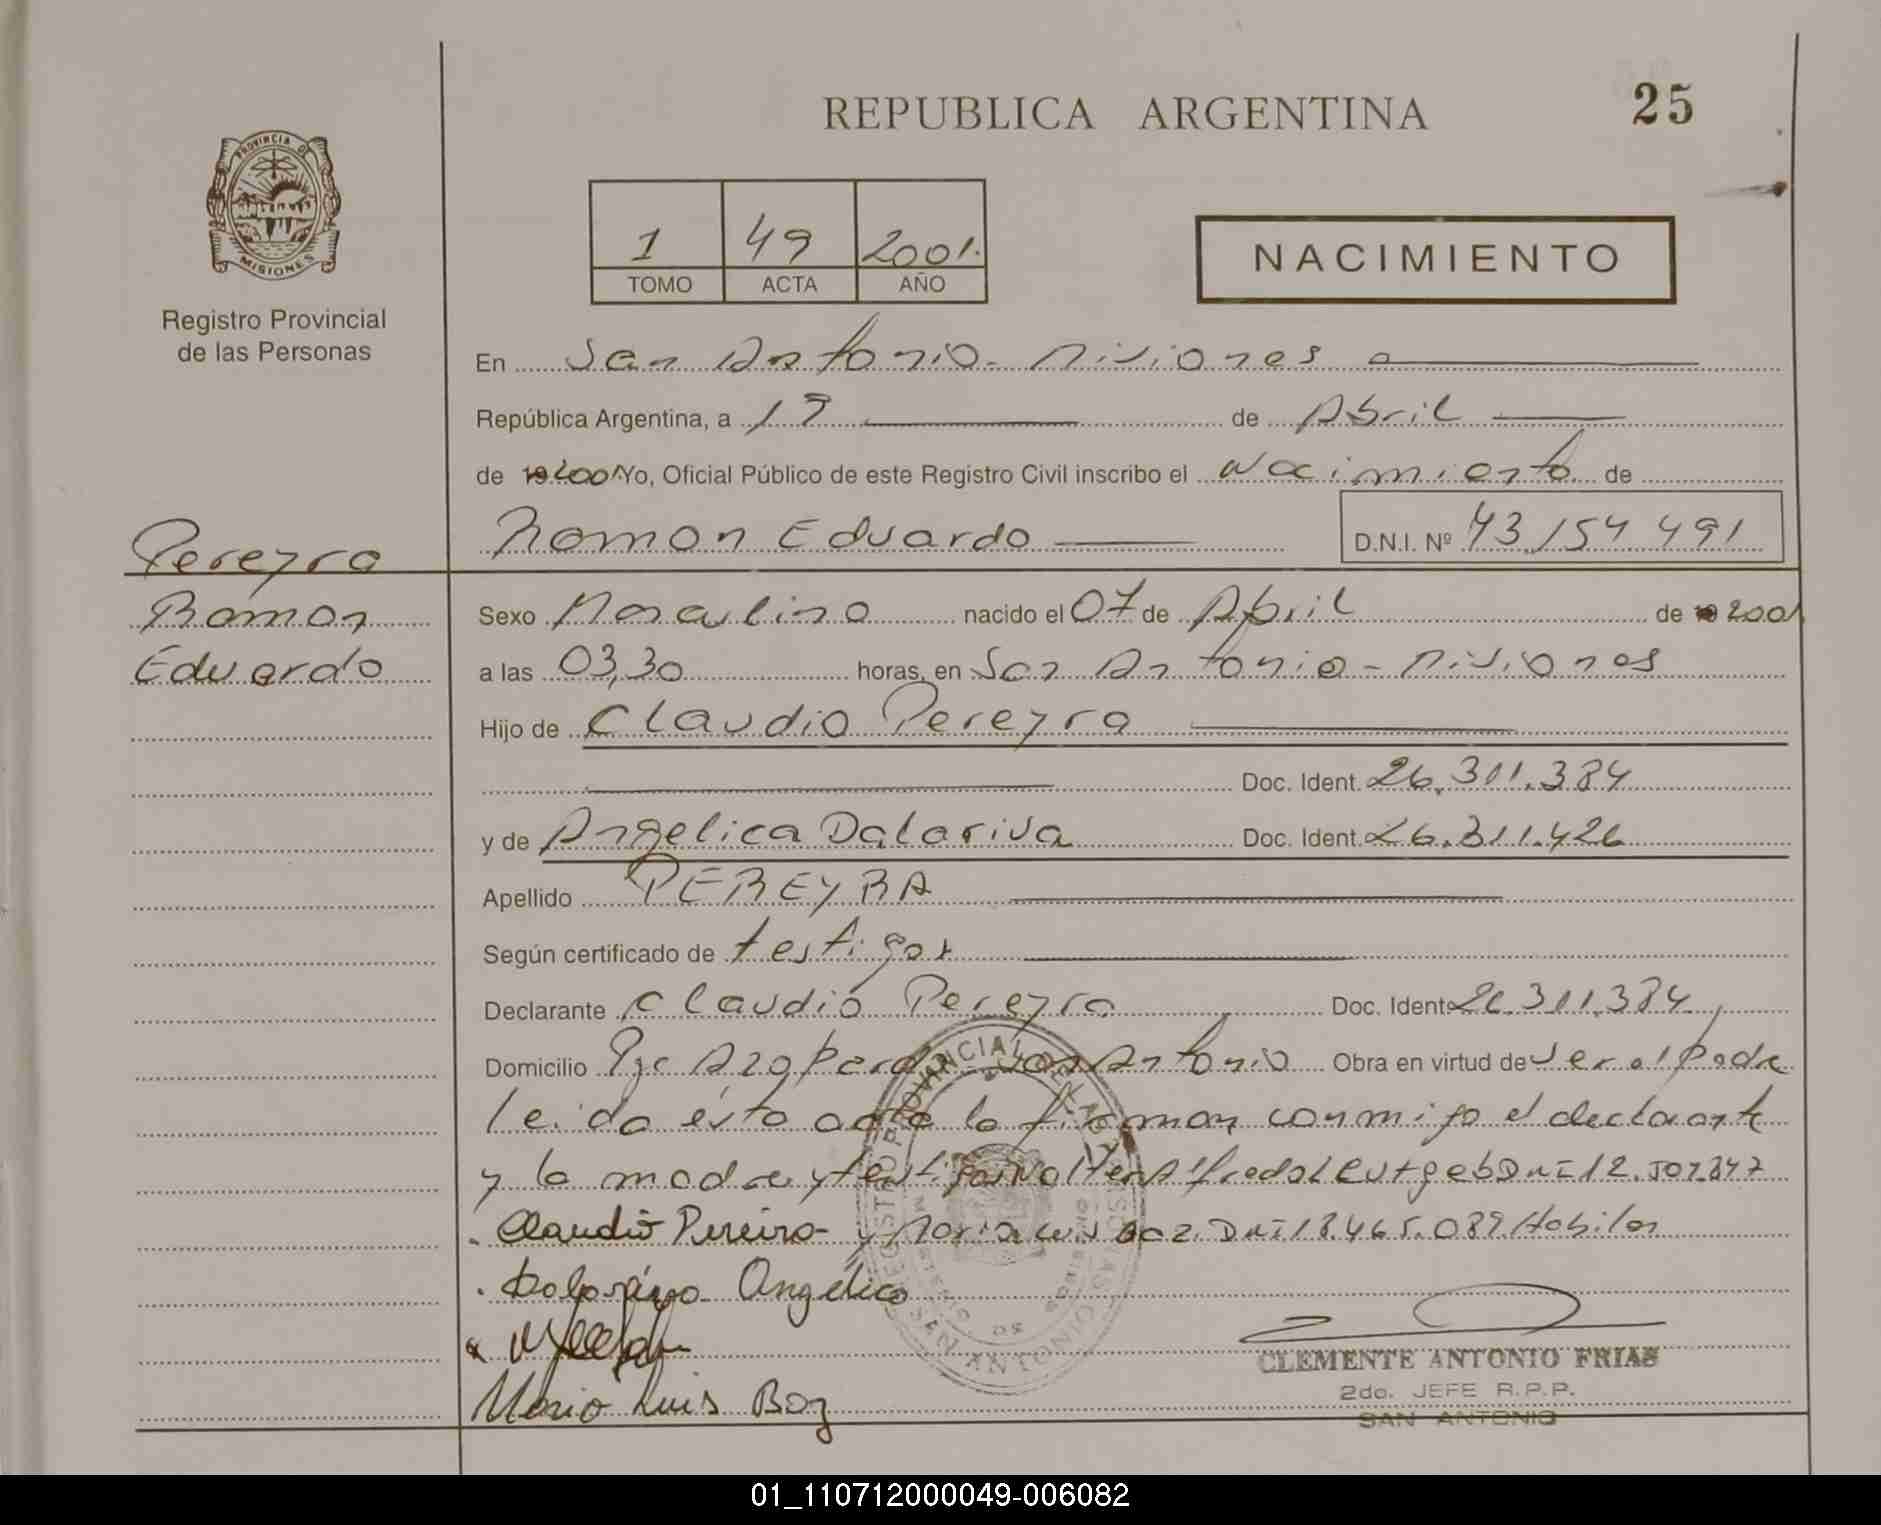 REPUBLICA ARGENTINA
25
PROVINCIA DE
MISIONES
Registro Provincial
de las Personas
1 49 2001.
TOMO ACTA AÑO
NACIMIENTO
En San Antonio - Misiones
República Argentina, a 19 de Abril
de 19 2001 Yo, Oficial Público de este Registro Civil inscribo el Nacimiento de
Ramon Eduardo D.N.I. Nº 43.154.491
Pereyra
Ramon
Eduardo
Sexo Masculino nacido el 07 de Abril de 19 2001
a las 03,30 horas, en San Antonio - Misiones
Hijo de Claudio Pereyra
Doc. Ident. 26.311.384
y de Angelica Dalariva Doc. Ident. 26.311.426
Apellido PEREYRA
Según certificado de testigos
Declarante Claudio Pereyra Doc. Ident. 26.311.384
Domicilio Pje Azopardo San Antonio Obra en virtud de ser el Padre
Leida ésta acta la firman conmigo el declarante
y la madre y testigos Walter Alfredo DNI 12.507.347
Claudio Pereira y Mario Luis Boz. DNI 18.465.089 Habiles
Angélica
Mario Luis Boz
REGISTRO PROVINCIAL DE LAS PERSONAS
SAN ANTONIO
CLEMENTE ANTONIO FRIAS
2do. JEFE R.P.P.
SAN ANTONIO
01_110712000049-006082